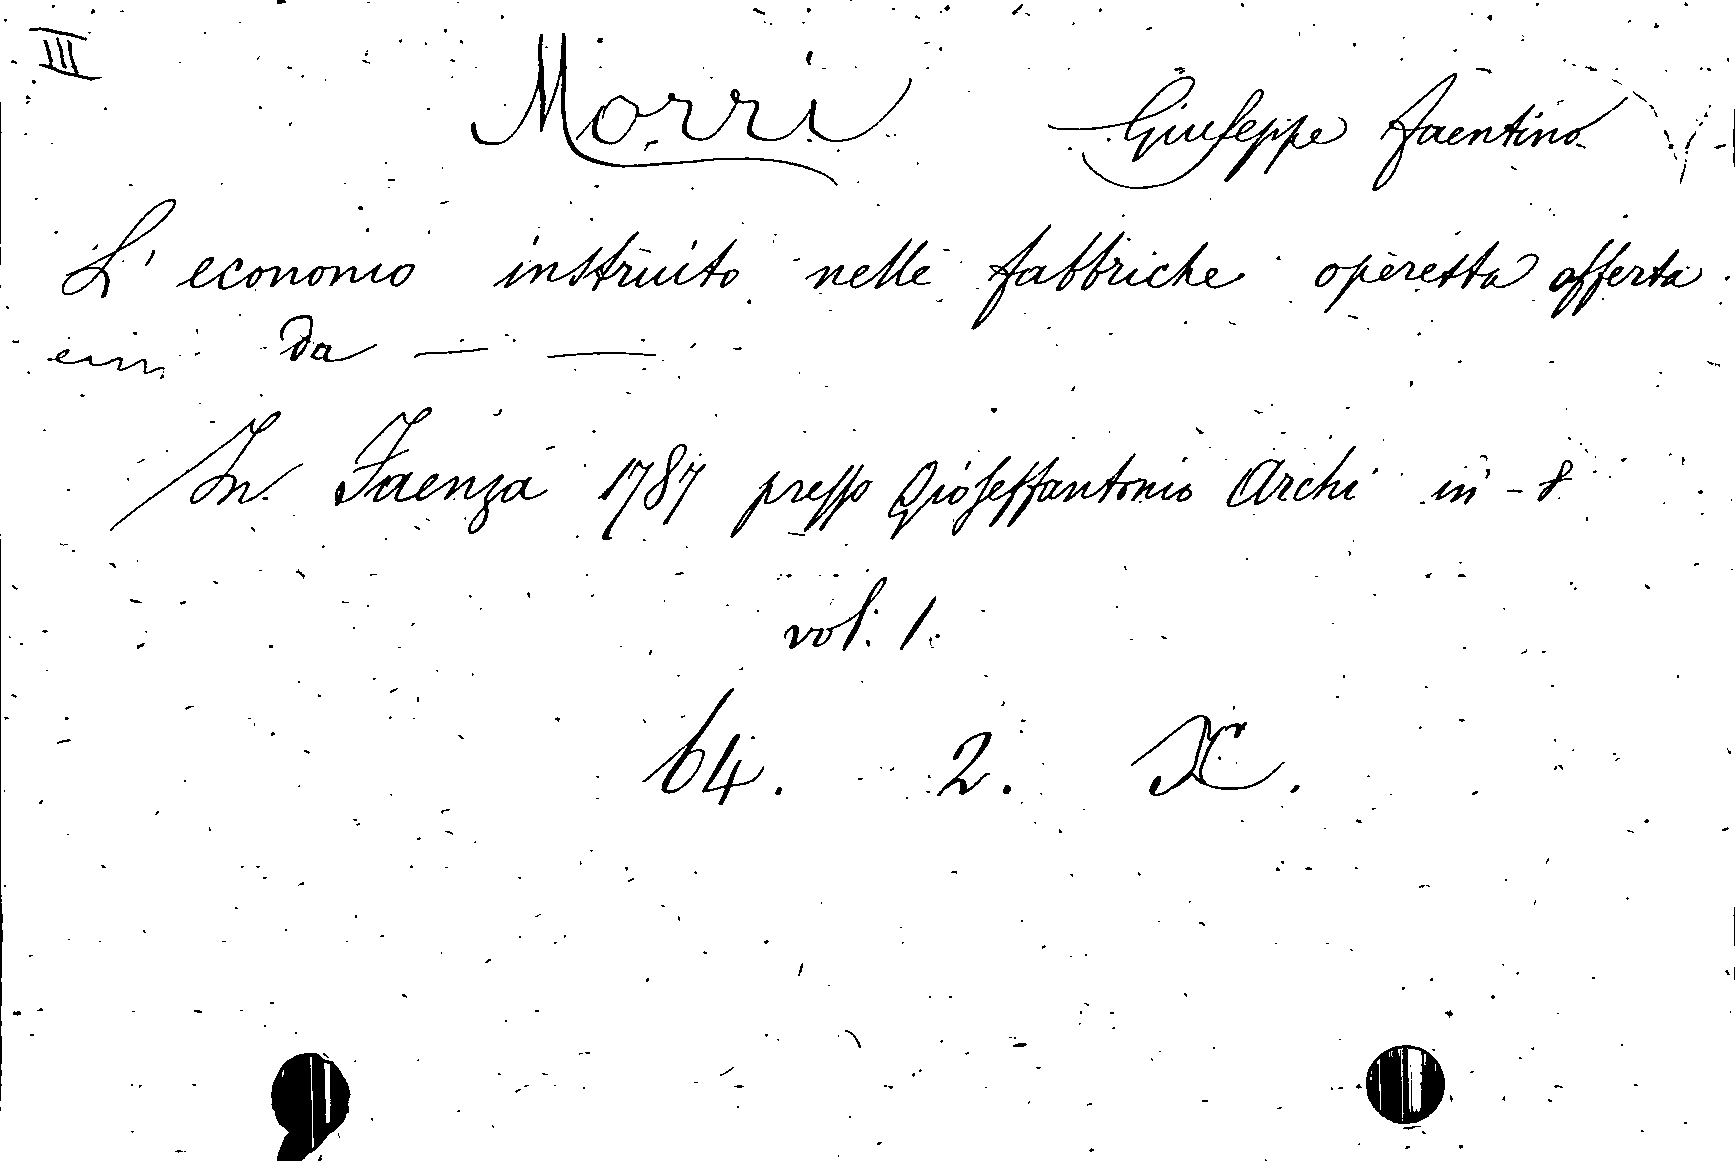 III
Morri Giuseppe faentino
L'economo instruito nelle fabbriche operetta offerta
da — —
In Faenza 1787 presso Gioseffantonio Archi in-8
vol. 1.
64. 2. X.